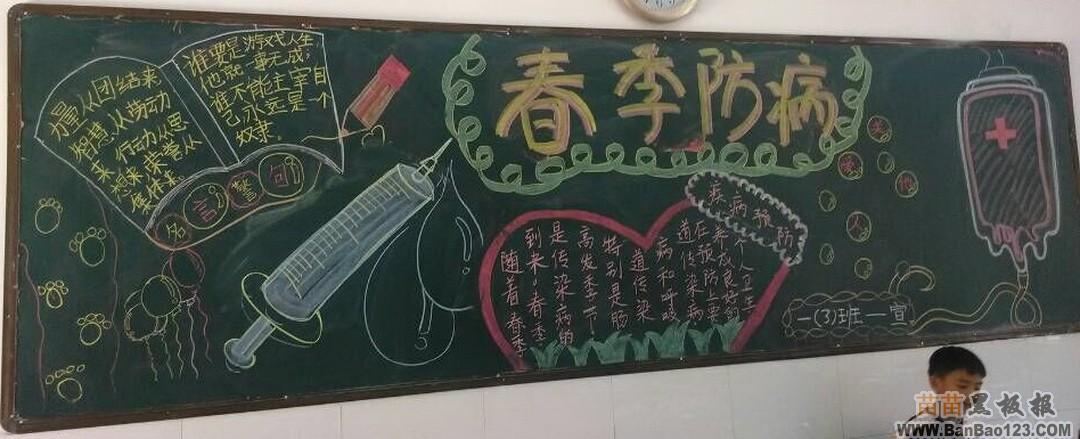 春季防病
力量从团结来
智慧从劳动
来,行动从思
想来荣誉从
集体来。
谁要是游戏人生
他就一事无成,
谁不能主宰自
己永远是一个
奴隶。
名言警句
疾病预防
随着春季
到来。春季
是传染病的
高发季节
特别是肠
道传染
病和呼吸
道传染病
在预防上要
养成良好的
个人卫生
一(3)班—宣
苗苗黑板报
www.BanBao123.com